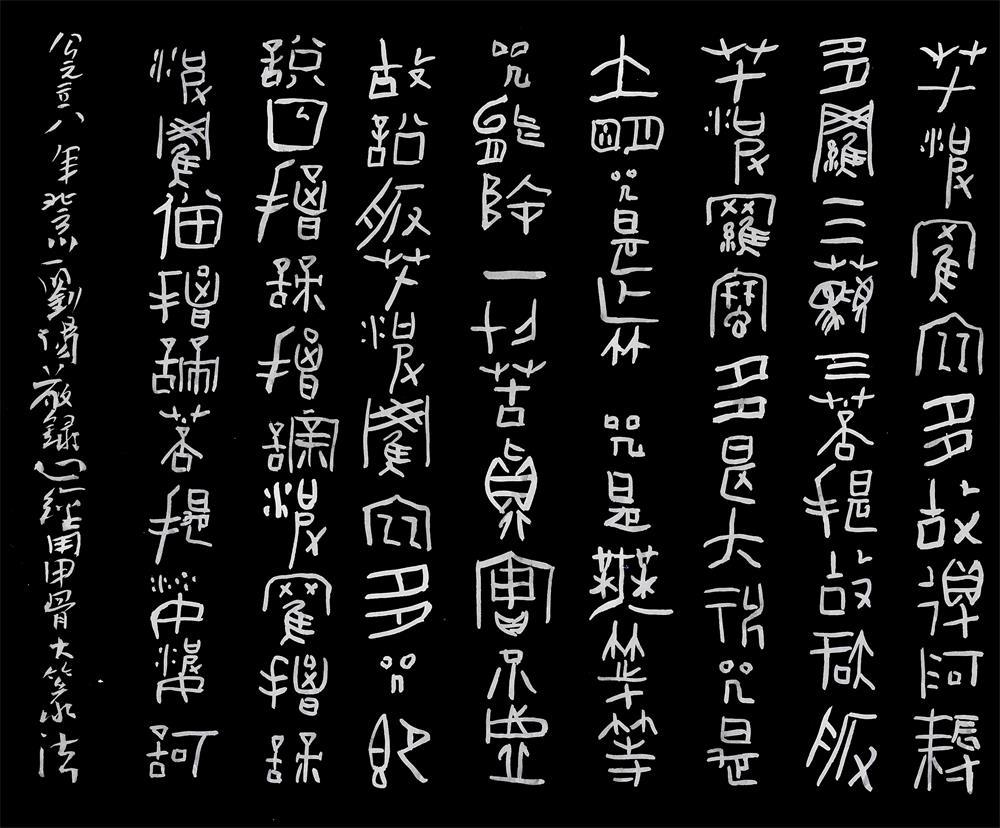 若波羅蜜多故得阿耨
多羅三藐三菩提故知般
若波羅蜜多是大神咒是
大明咒是上咒是無等等
咒能除一切苦真實不虛
故說般若波羅蜜多咒即
說曰揭諦揭諦波羅揭諦
波羅僧揭諦菩提薩婆訶
公元八年北京劉敬録心經用甲骨大篆法